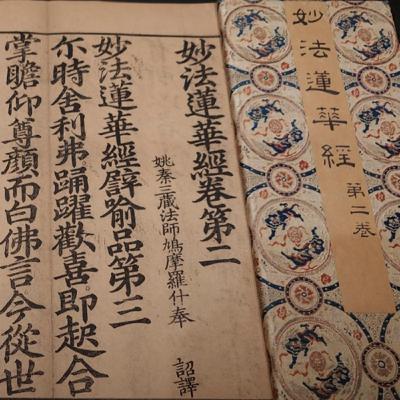 妙法蓮華經 第二卷
妙法蓮華經卷第二
姚秦三藏法師鳩摩羅什奉 詔譯
妙法蓮華經譬喻品第三
尒時舍利弗踊躍歡喜即起合
掌瞻仰尊顏而白佛言今從世